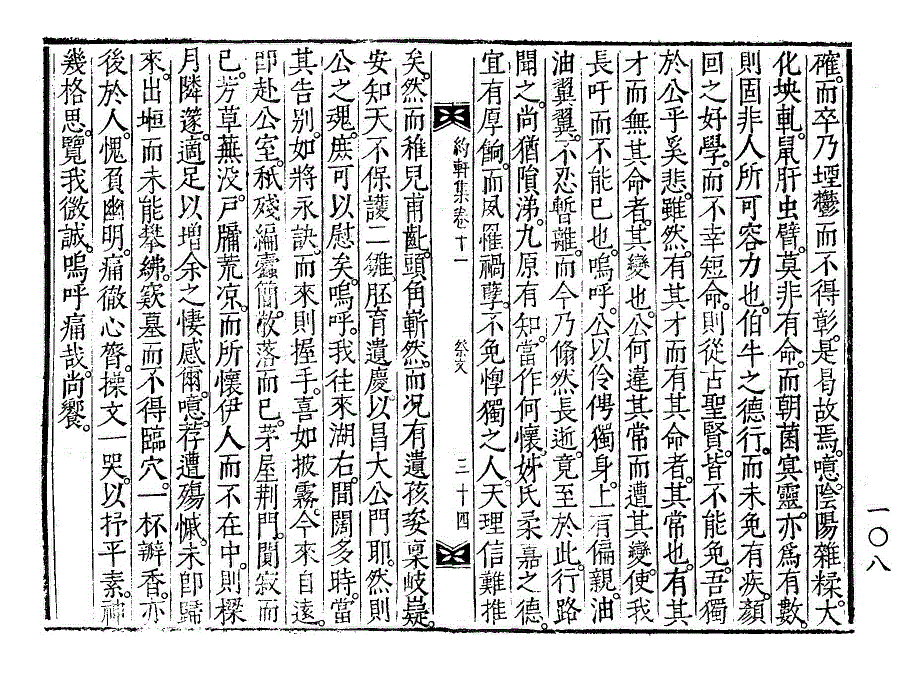 確。而卒乃堙鬱而不得彰。是曷故焉。噫。陰陽雜糅。大
化坱軋。鼠肝虫臂。莫非有命。而朝菌冥靈。亦爲有數。
則固非人所可容力也。伯牛之德行。而未免有疾。顔
回之好學。而不幸短命。則從古聖賢。皆不能免。吾獨
於公乎奚悲。雖然。有其才而有其命者。其常也。有其
才而無其命者。其變也。公何違其常而遭其變。使我
長吁而不能已也。嗚呼。公以伶俜獨身。上有偏親。油
油翼翼。不忍暫離。而今乃翛然長逝。竟至於此。行路
聞之。尚猶隕涕。九原有知。當作何懷。妣氏柔嘉之德
宜有厚餉。而夙罹禍孽。不免惸獨之人。天理信難推
約軒集卷十一 祭文 三十四
矣。然而稚兒甫齔。頭角嶄然。而况有遺孩姿稟岐嶷。
安知天不保護二雛。胚育遺慶。以昌大公門耶。然則
公之魂。庶可以慰矣。嗚呼。我往來湖右。間闊多時。當
其告别。如將永訣。而來則握手。喜如披霧。今來自遠。
卽赴公室。秖殘編蠹簡。散落而已。茅屋荆門。闃寂而
已。芳草蕪没。戶牖荒凉。而所懷伊人而不在中。則樑
月隣篴。適足以增余之悽感爾。噫。荐遭殤慽。未卽歸
來。出垣而未能攀紼。窾墓而不得臨穴。一杯瓣香。亦
後於人。愧負幽明。痛徹心膂。操文一哭。以抒平素。神
幾格思。覽我微誠。嗚呼痛哉。尚饗。
一〇八